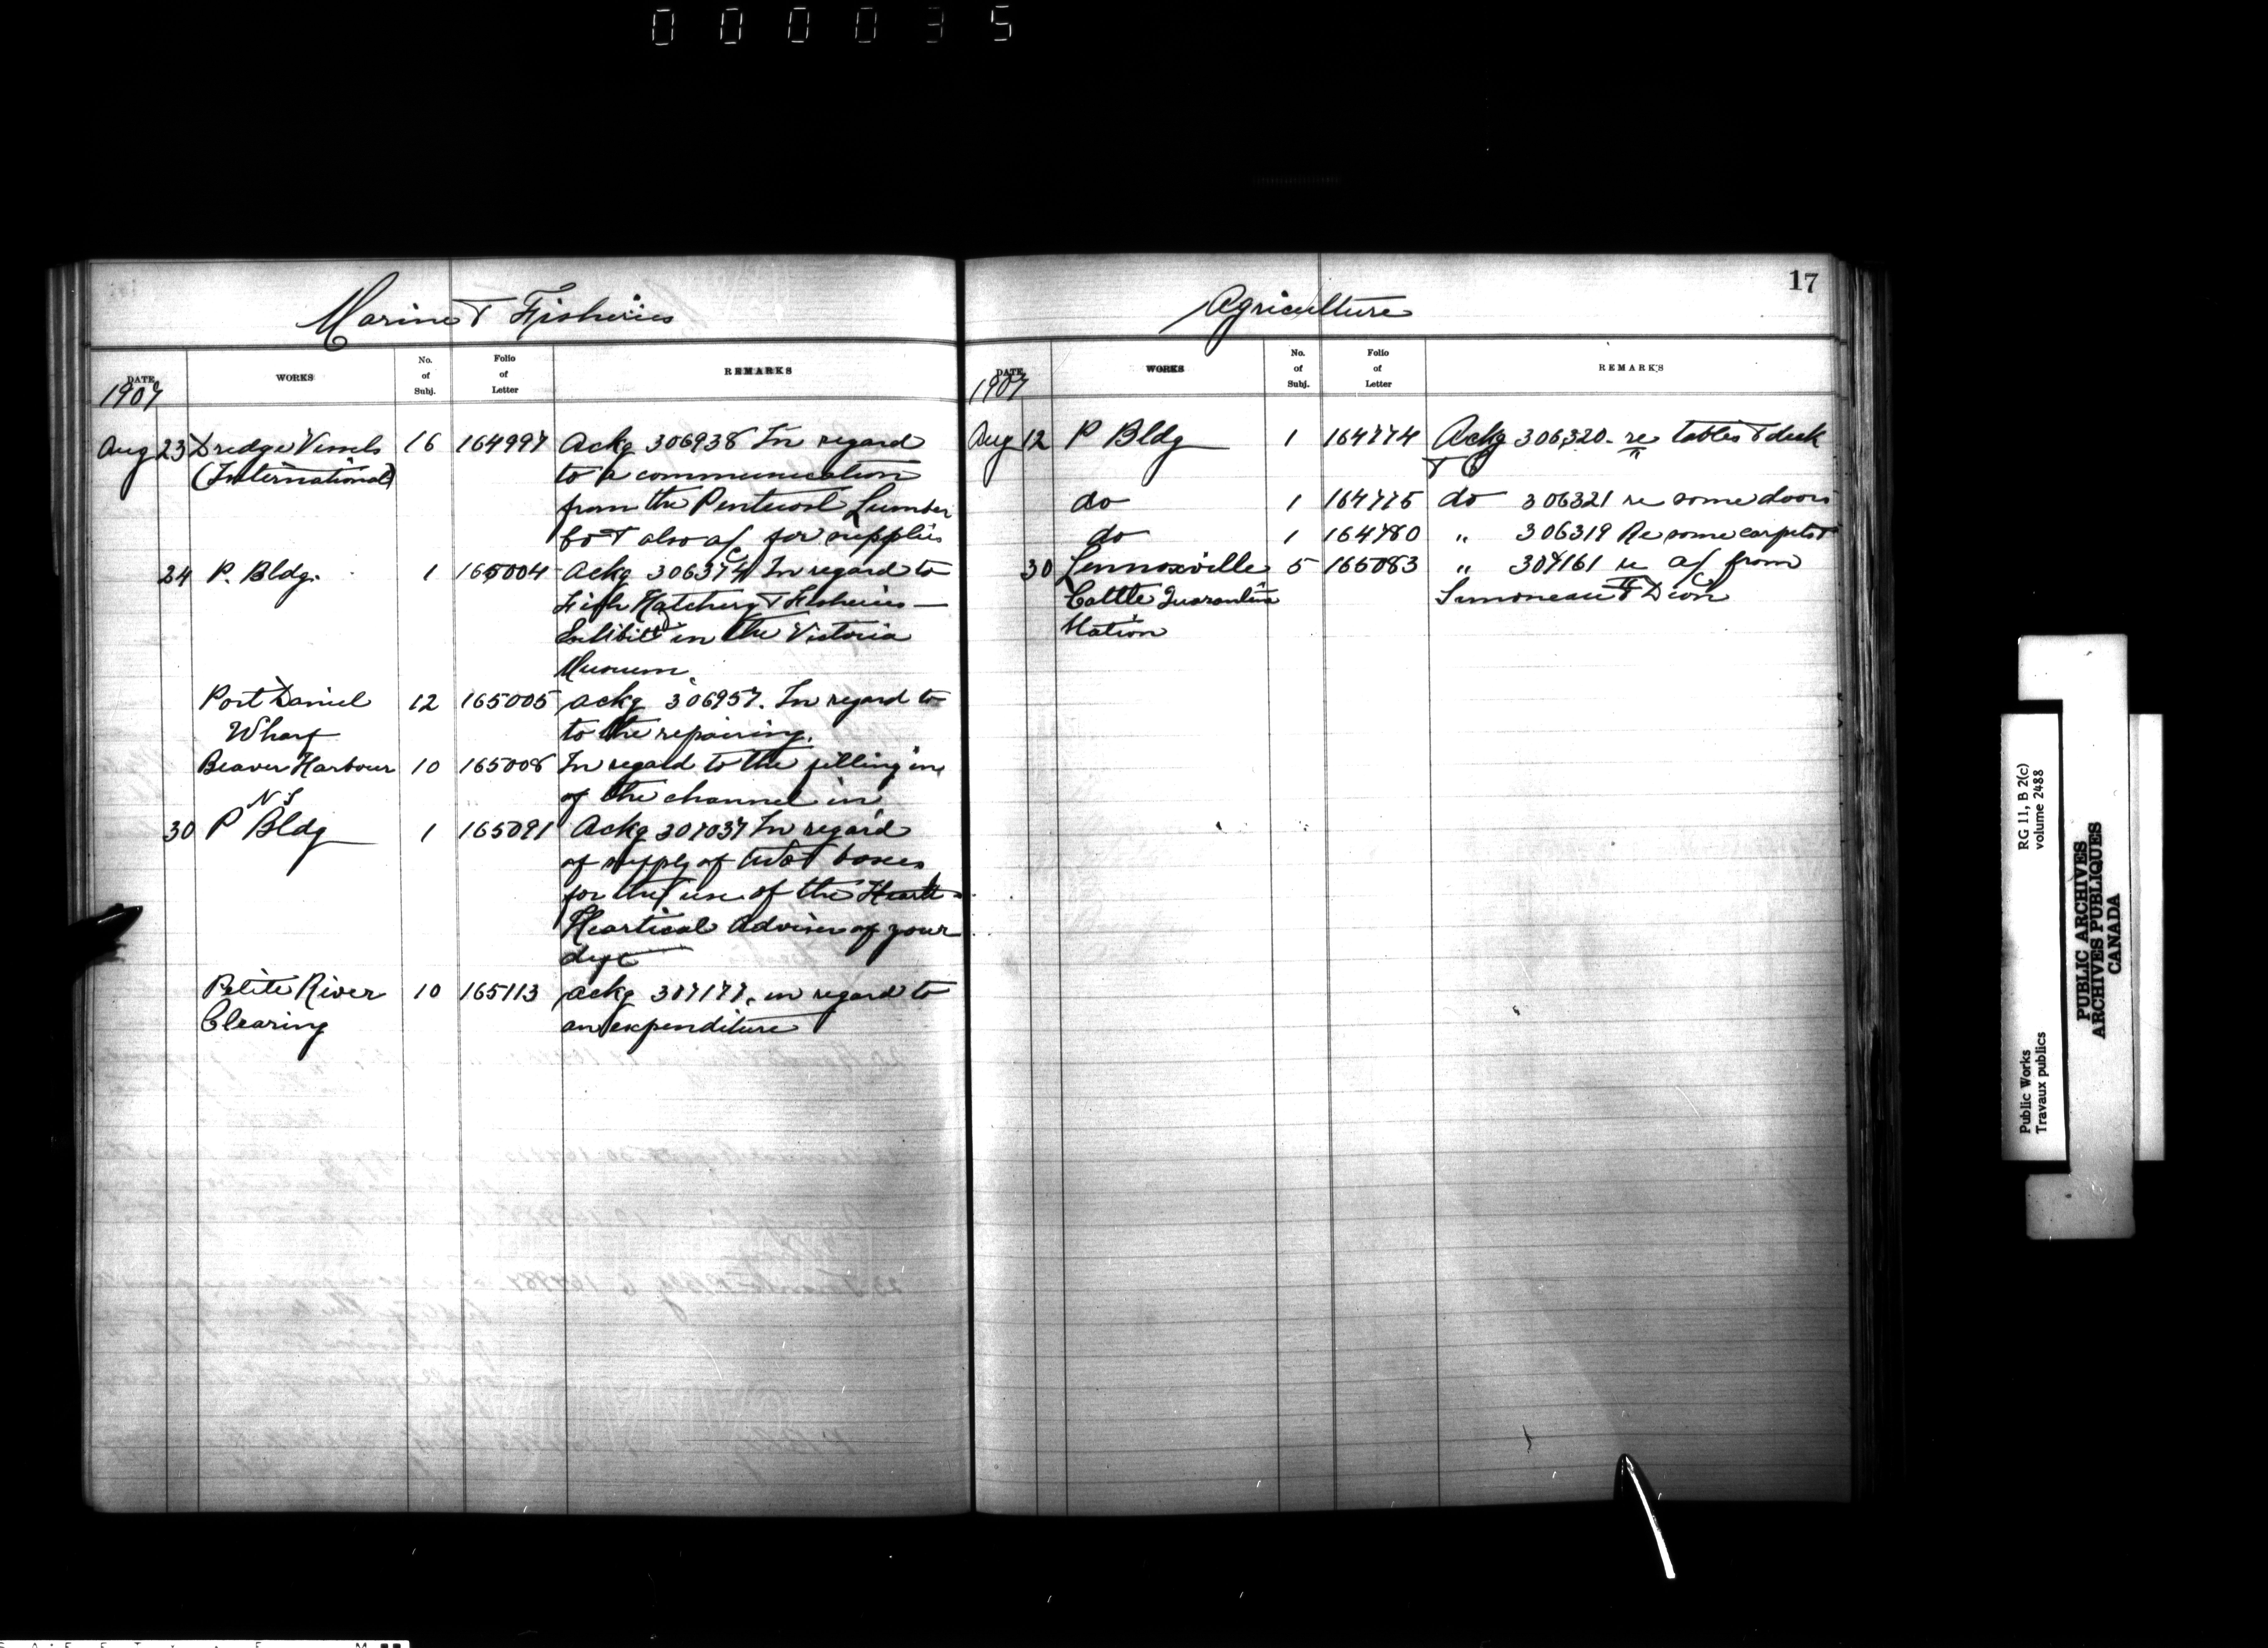 000035
Marine & Fisheries
DATE WORKS No. of Subj. Folio of Letter REMARKS
1907
Aug 23 Dredge Vessels 16 164997 Ackg 306938 In regard
(International) to a communication
from the Lumber
Co & also a/c for supplies
24 P. Bldg. 1 165004 Ackg 306374 In regard to
Fish Hatchery & Fisheries
Exhibit in the Victoria
Museum.
Port Daniel 12 165005 Ackg 306957. In regard to
Wharf to the repairing.
Beaver Harbour 10 165008 In regard to the filling in
N S of the channel in
30 P Bldg 1 165091 Ackg 307037 In regard
of supply of two boxes
for the use of the
Adviser of your
dept
Petite River 10 165113 Ackg 307177. in regard to
Clearing an expenditure
17
Agriculture
DATE WORKS No. of Subj. Folio of Letter REMARKS
1907
Aug 12 P Bldg 1 164774 Ackg 306320. re tables & desk
do 1 164775 do 306321 re some doors
do 1 164780 " 306319 Re some carpets
30 Lennoxville 5 165083 " 307161 re a/c from
Cattle Quarantine Simoneau & Dion
Station
Public Works RG 11, B 2(c)
Travaux publics volume 2488
PUBLIC ARCHIVES
ARCHIVES PUBLIQUES
CANADA